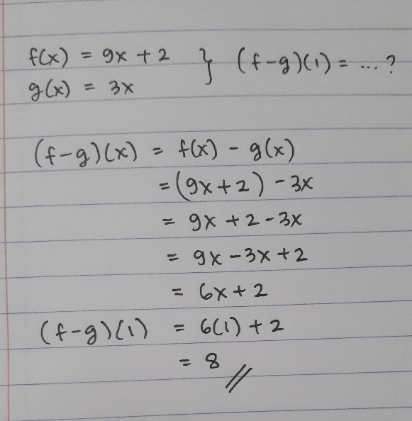 f(x) = 9x + 2 } (f-g)(1) = ... ?
g(x) = 3x
(f-g)(x) = f(x) - g(x)
= (9x+2) - 3x
= 9x + 2 - 3x
= 9x - 3x + 2
= 6x + 2
(f-g)(1) = 6(1) + 2
= 8 //